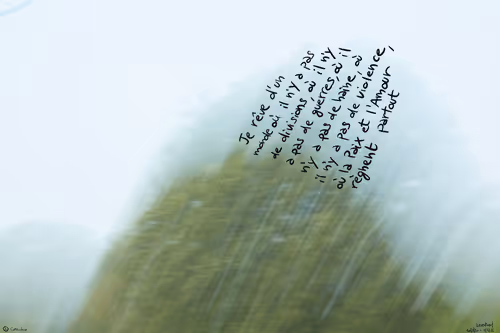 Je rêve d'un
monde où il n'y a pas
de divisions où il n'y
a pas de guerres où il
n'y a pas de haine où
il n'y a pas de violence,
où la Paix et l'Amour,
règnent partout